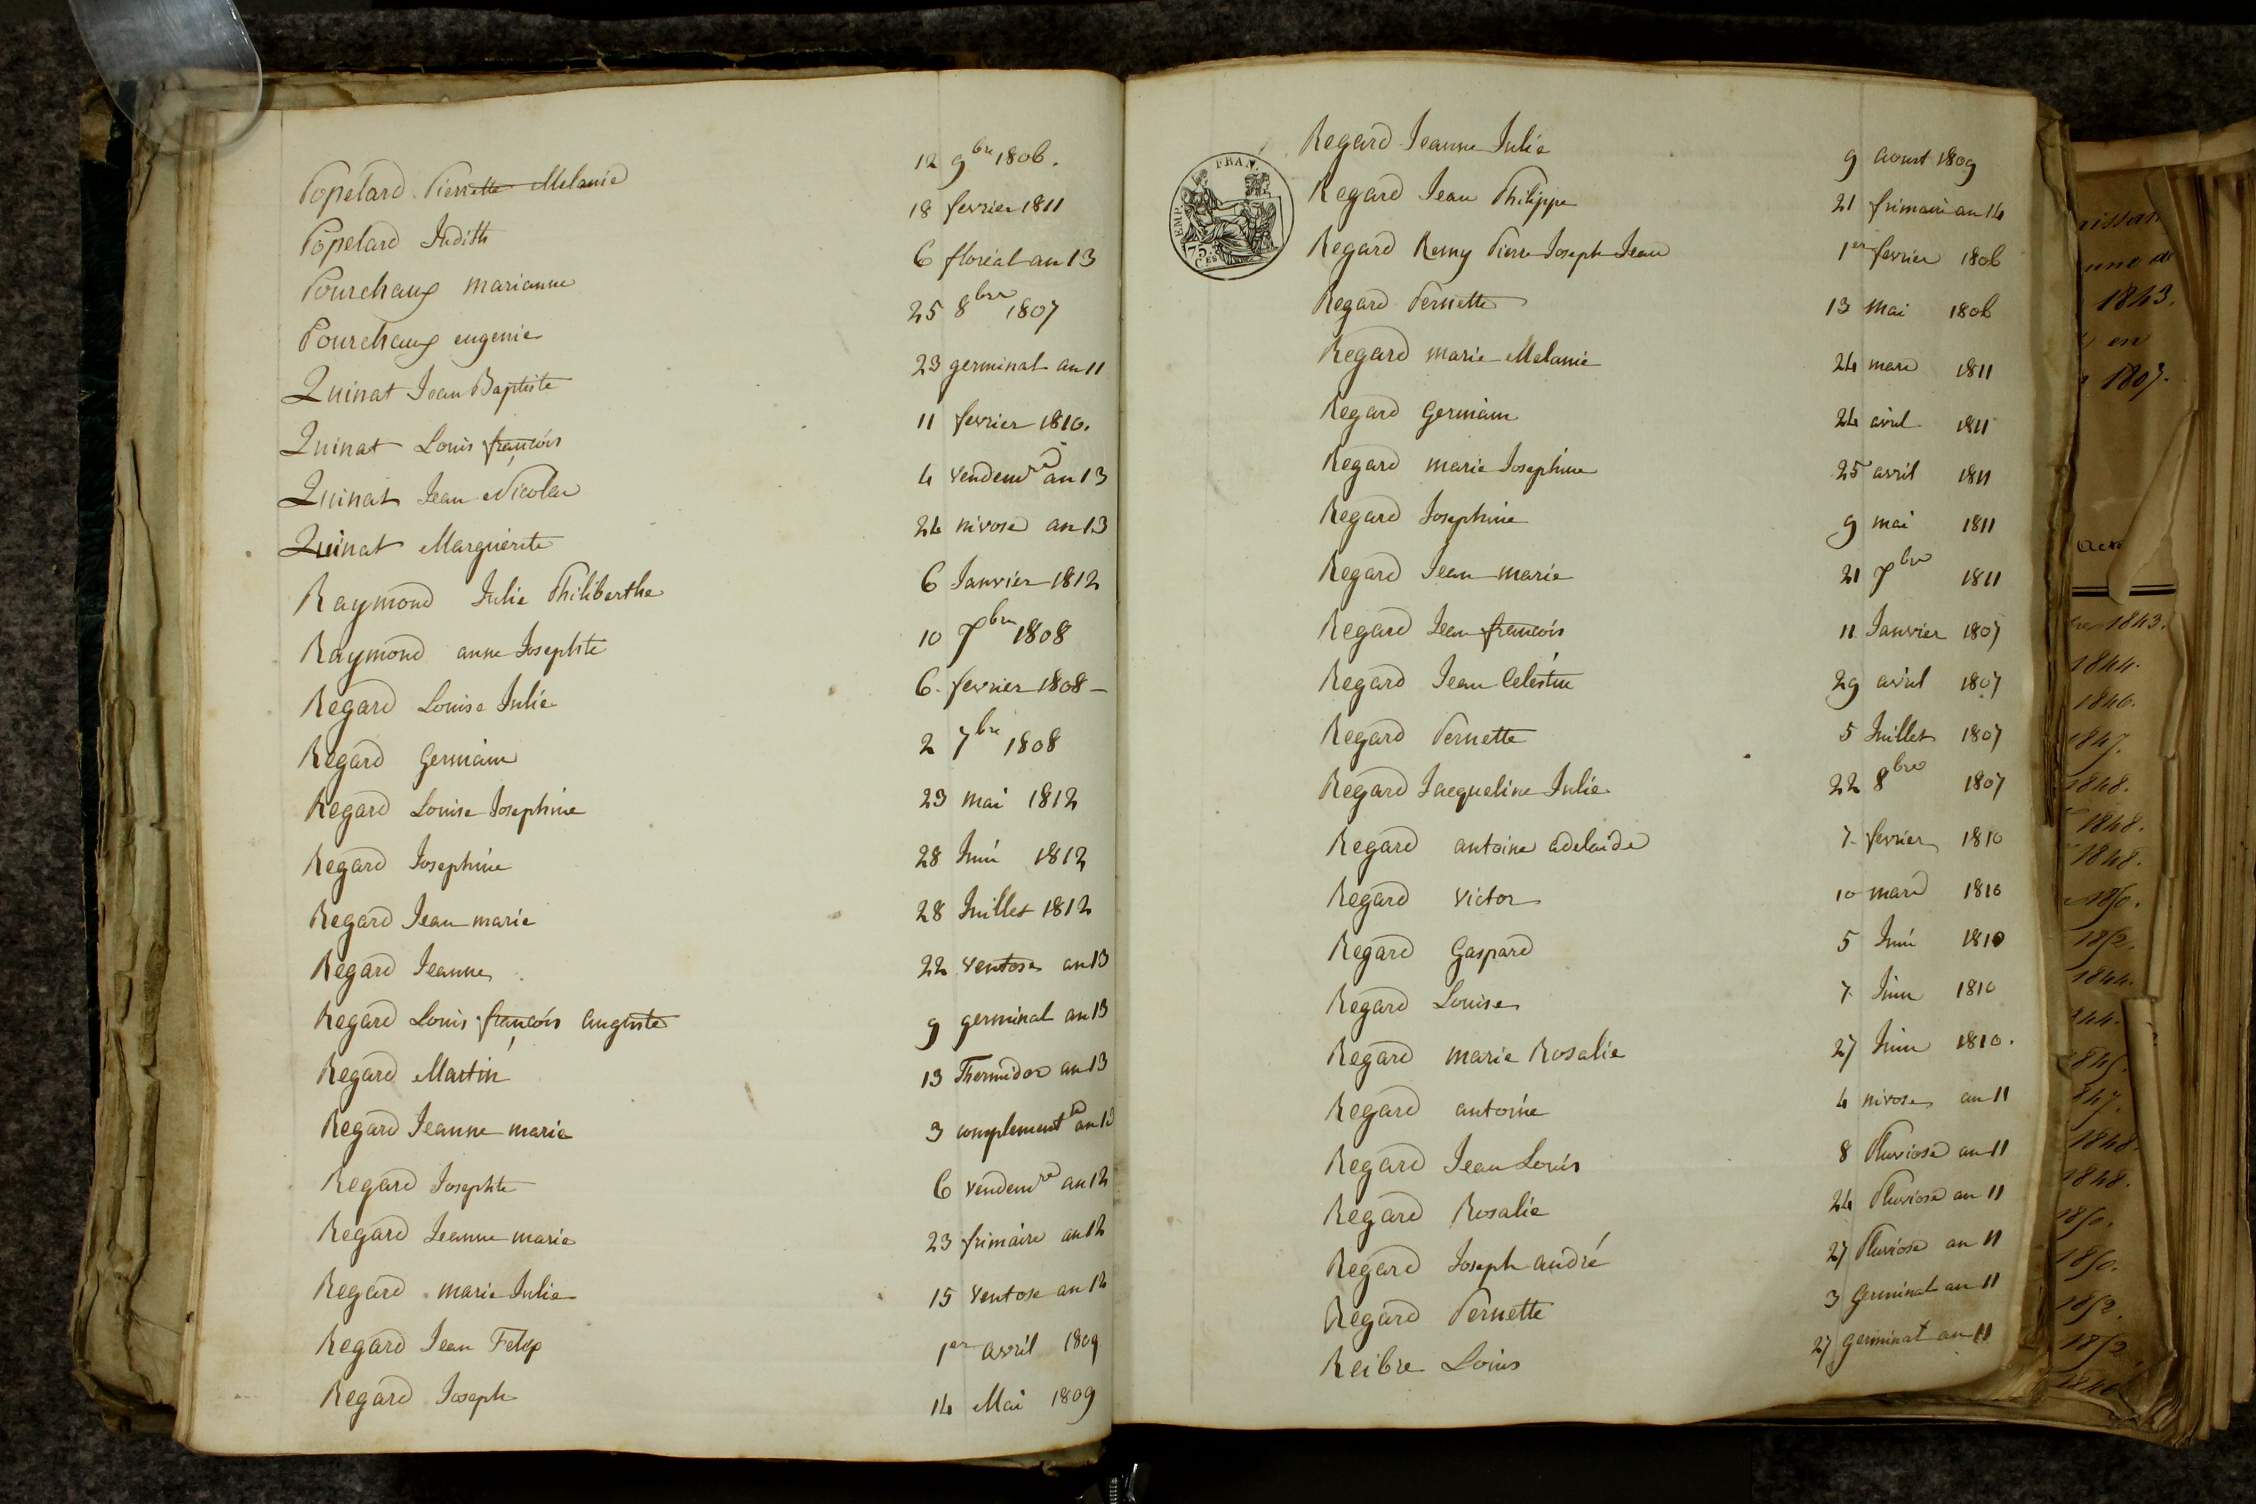 Popelard Pierrette Melanie 12 9bre 1806.
Popelard Judith 18 fevrier 1811
Pourchaux marianne 6 floréal an 13
Pourchaux eugenie 25 8bre 1807
Quinat Jean Baptiste 23 germinal an 11
Quinat Louis francois 11 fevrier 1810.
Quinat Jean Nicolas 4 vendemre an 13
Quinat Marguerite 24 nivose an 13
Raymond Julie Philiberthe 6 Janvier 1812
Raymond anne Josephte 10 7bre 1808
Regard Louise Julie 6. fevrier 1808 -
Regard Germain 2 7bre 1808
Regard Louise Josephine 23 mai 1812
Regard Josephine 28 Juin 1812
Regard Jean marie 28 Juillet 1812
Regard Jeanne 22 ventose an 13
Regard Louis francois auguste 9 germinal an 13
Regard Martin 13 Thermidor an 13
Regard Jeanne marie 3 complementre an 13
Regard Josephte 6 vendemre an 12
Regard Jeanne marie 23 frimaire an 12
Regard marie Julie 15 ventose an 12
Regard Jean Felix 1er avril 1809
Regard Joseph 14 Mai 1809
EMP. FRAN.
75
CES
Regard Jeanne Julie 9 aoust 1809
Regard Jean Philippe 21 frimaire an 14
Regard Remy Pierre Joseph Jean 1er fevrier 1806
Regard Pernette 13 Mai 1806
Regard marie Melanie 24 mars 1811
Regard Germain 24 avril 1811
Regard marie Josephine 25 avril 1811
Regard Josephine 9 mai 1811
Regard Jean marie 21 7bre 1811
Regard Jean francois 11 Janvier 1807
Regard Jean Celestin 29 avril 1807
Regard Pernette 5 Juillet 1807
Regard Jacqueline Julie 22 8bre 1807
Regard antoine adelaide 7 fevrier 1810
Regard victor 10 mars 1810
Regard Gaspard 5 Juin 1810
Regard Louise 7 Juin 1810
Regard marie Rosalie 27 Juin 1810.
Regard antoine 4 nivose an 11
Regard Jean Louis 8 Pluviose an 11
Regard Rosalie 24 Pluviose an 11
Regard Joseph andré 27 Pluviose an 11
Regard Pernette 3 Germinal an 11
Reibre Louis 27 germinal an 11
1843.
en
1807.
1843.
1844.
1846.
1847.
1848.
1848.
1848.
1844.
1847.
1848.
1848.